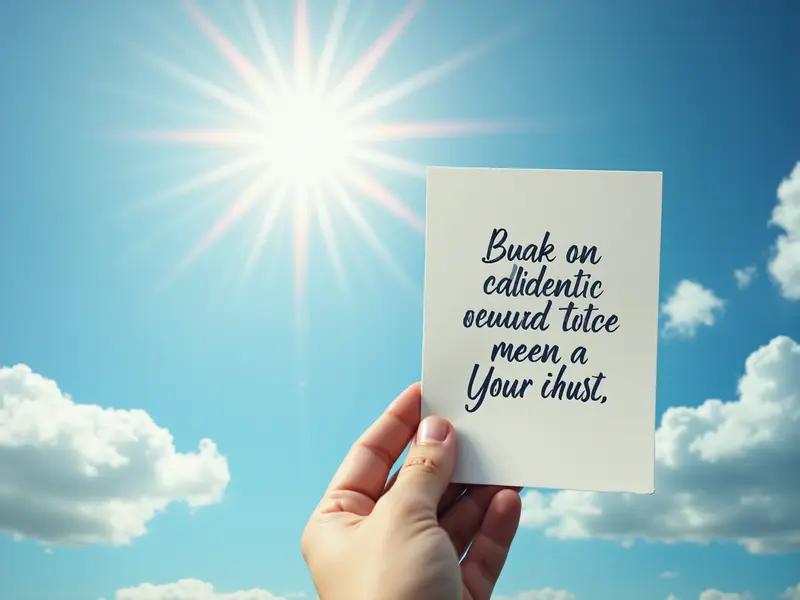 Buak on
calidentic
oeuurd totce
meen a
Your ihust,